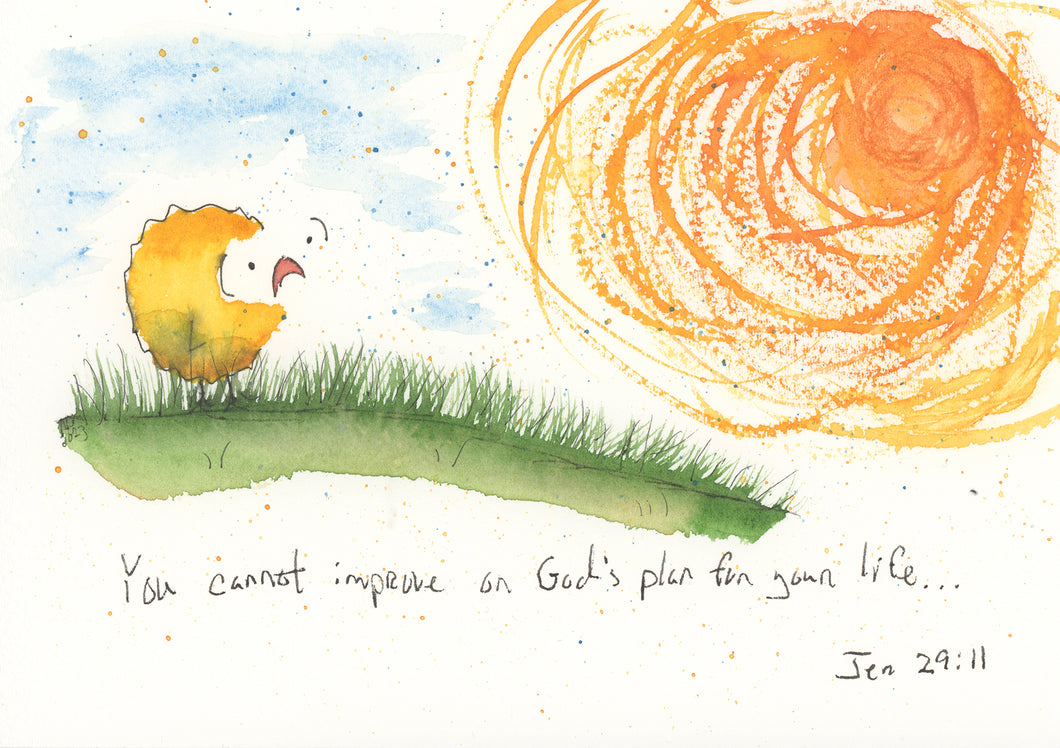 You cannot improve on God's plan for your life...
Jer 29:11